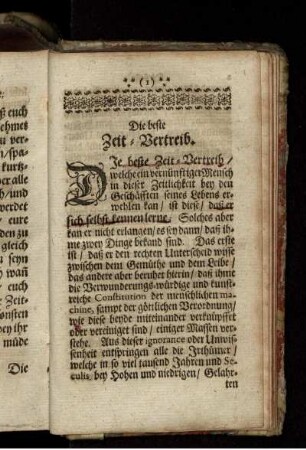 ** (1) **
Die beste
Zeit-Vertreib.
DIe beste Zeit-Vertreib /
welche ein vernünftiger Mensch
in dieser Zeitlichkeit bey den
Geschäfften seines Lebens er-
wehlen kan / ist diese / daß er
sich selbst kennen lerne. Solches aber
kan er nicht erlangen / es sey dann / daß ih-
me zwey Dinge bekand sind. Das erste
ist / daß er den rechten Unterscheid wisse
zwischen dem Gemüthe und dem Leibe /
das andere aber beruhet hierin / daß ihme
die Verwunderungs-würdige und kunst-
reiche Constitution der menschlichen ma-
chine, sampt der göttlichen Verordnung /
wie diese beyde miteinander verknüpffet
oder vereiniget sind / einiger Massen ver-
stehe. Aus dieser ignorance oder Unwis-
senheit entspringen alle die Irrthümer /
welche in so viel tausend Jahren und Se-
culis bey Hohen und niedrigen / Gelahr-
ten
ß euch
ehmet
zu ver-
n / spa-
kurtz-
er alle
h / und
verdet
eure
zu
gleich
u seyn
wañ
euch
e Zeit-
önsten
bey ihr
müde
Die